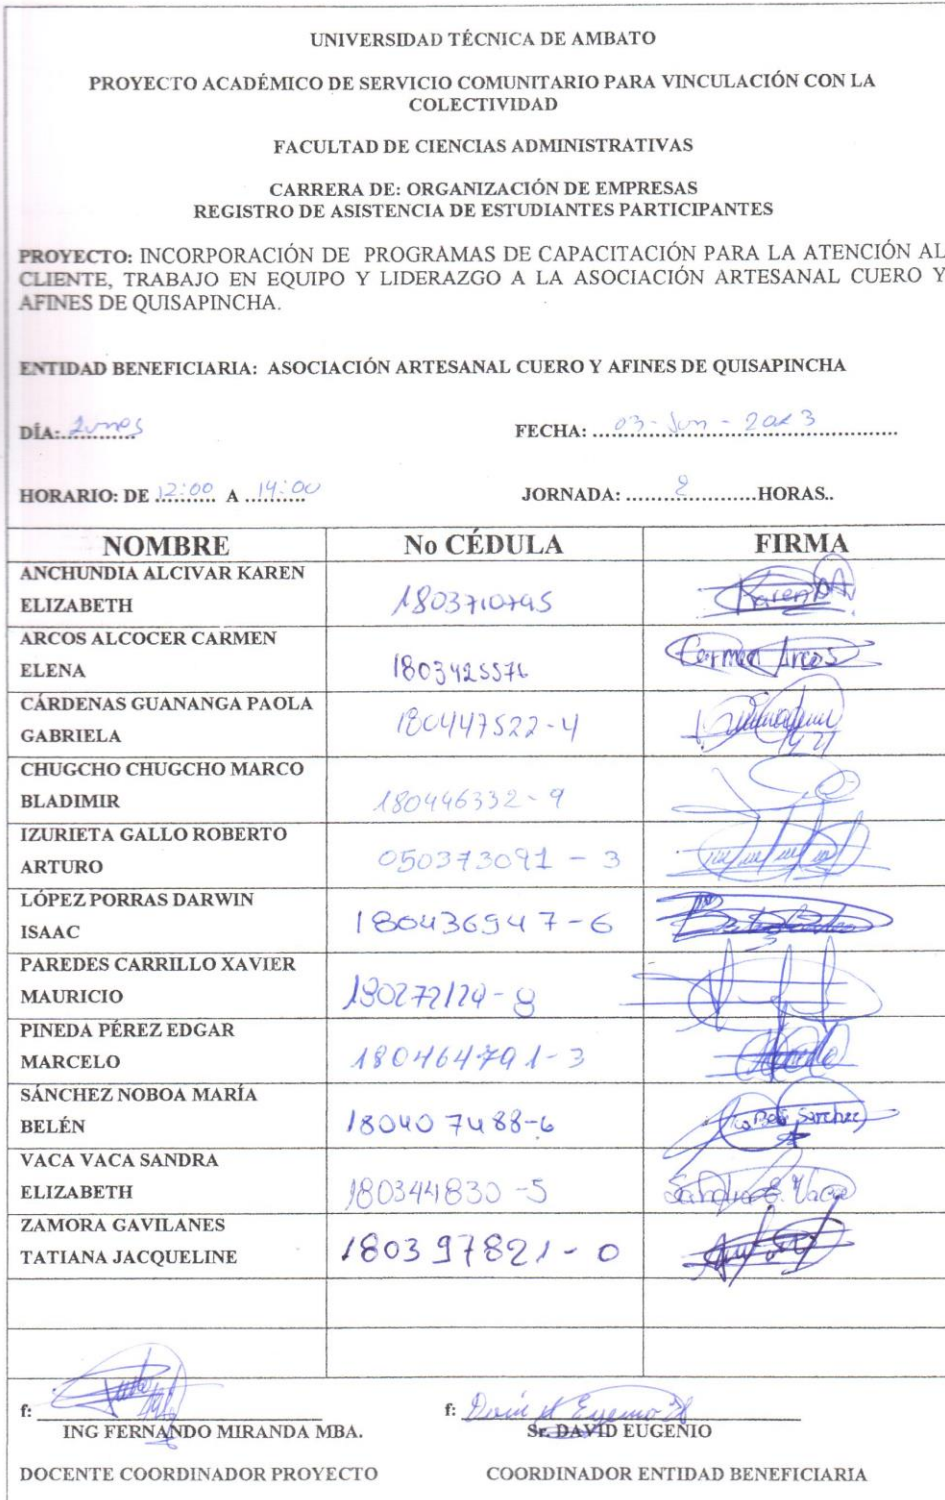 UNIVERSIDAD TÉCNICA DE AMBATO
PROYECTO ACADÉMICO DE SERVICIO COMUNITARIO PARA VINCULACIÓN CON LA
COLECTIVIDAD
FACULTAD DE CIENCIAS ADMINISTRATIVAS
CARRERA DE: ORGANIZACIÓN DE EMPRESAS
REGISTRO DE ASISTENCIA DE ESTUDIANTES PARTICIPANTES
PROYECTO: INCORPORACIÓN DE PROGRAMAS DE CAPACITACIÓN PARA LA ATENCIÓN AL
CLIENTE, TRABAJO EN EQUIPO Y LIDERAZGO A LA ASOCIACIÓN ARTESANAL CUERO Y
AFINES DE QUISAPINCHA.
ENTIDAD BENEFICIARIA: ASOCIACIÓN ARTESANAL CUERO Y AFINES DE QUISAPINCHA
DÍA: Lunes FECHA: 03-Jun-2013
HORARIO: DE 12:00 A 14:00 JORNADA: 2 HORAS..
NOMBRE No CÉDULA FIRMA
ANCHUNDIA ALCIVAR KAREN
ELIZABETH 1803710795 Karen
ARCOS ALCOCER CARMEN
ELENA 1803425576 Carmen Arcos
CÁRDENAS GUANANGA PAOLA
GABRIELA 180447522-4
CHUGCHO CHUGCHO MARCO
BLADIMIR 180446332-9
IZURIETA GALLO ROBERTO
ARTURO 050373091-3
LÓPEZ PORRAS DARWIN
ISAAC 180436947-6
PAREDES CARRILLO XAVIER
MAURICIO 180272124-8
PINEDA PÉREZ EDGAR
MARCELO 180464791-3
SÁNCHEZ NOBOA MARÍA
BELÉN 180407488-6 Sánchez
VACA VACA SANDRA
ELIZABETH 180344830-5 Sandra E. Vaca
ZAMORA GAVILANES
TATIANA JACQUELINE 180397821-0
f: f: David Eugenio
ING FERNANDO MIRANDA MBA. Sr. DAVID EUGENIO
DOCENTE COORDINADOR PROYECTO COORDINADOR ENTIDAD BENEFICIARIA